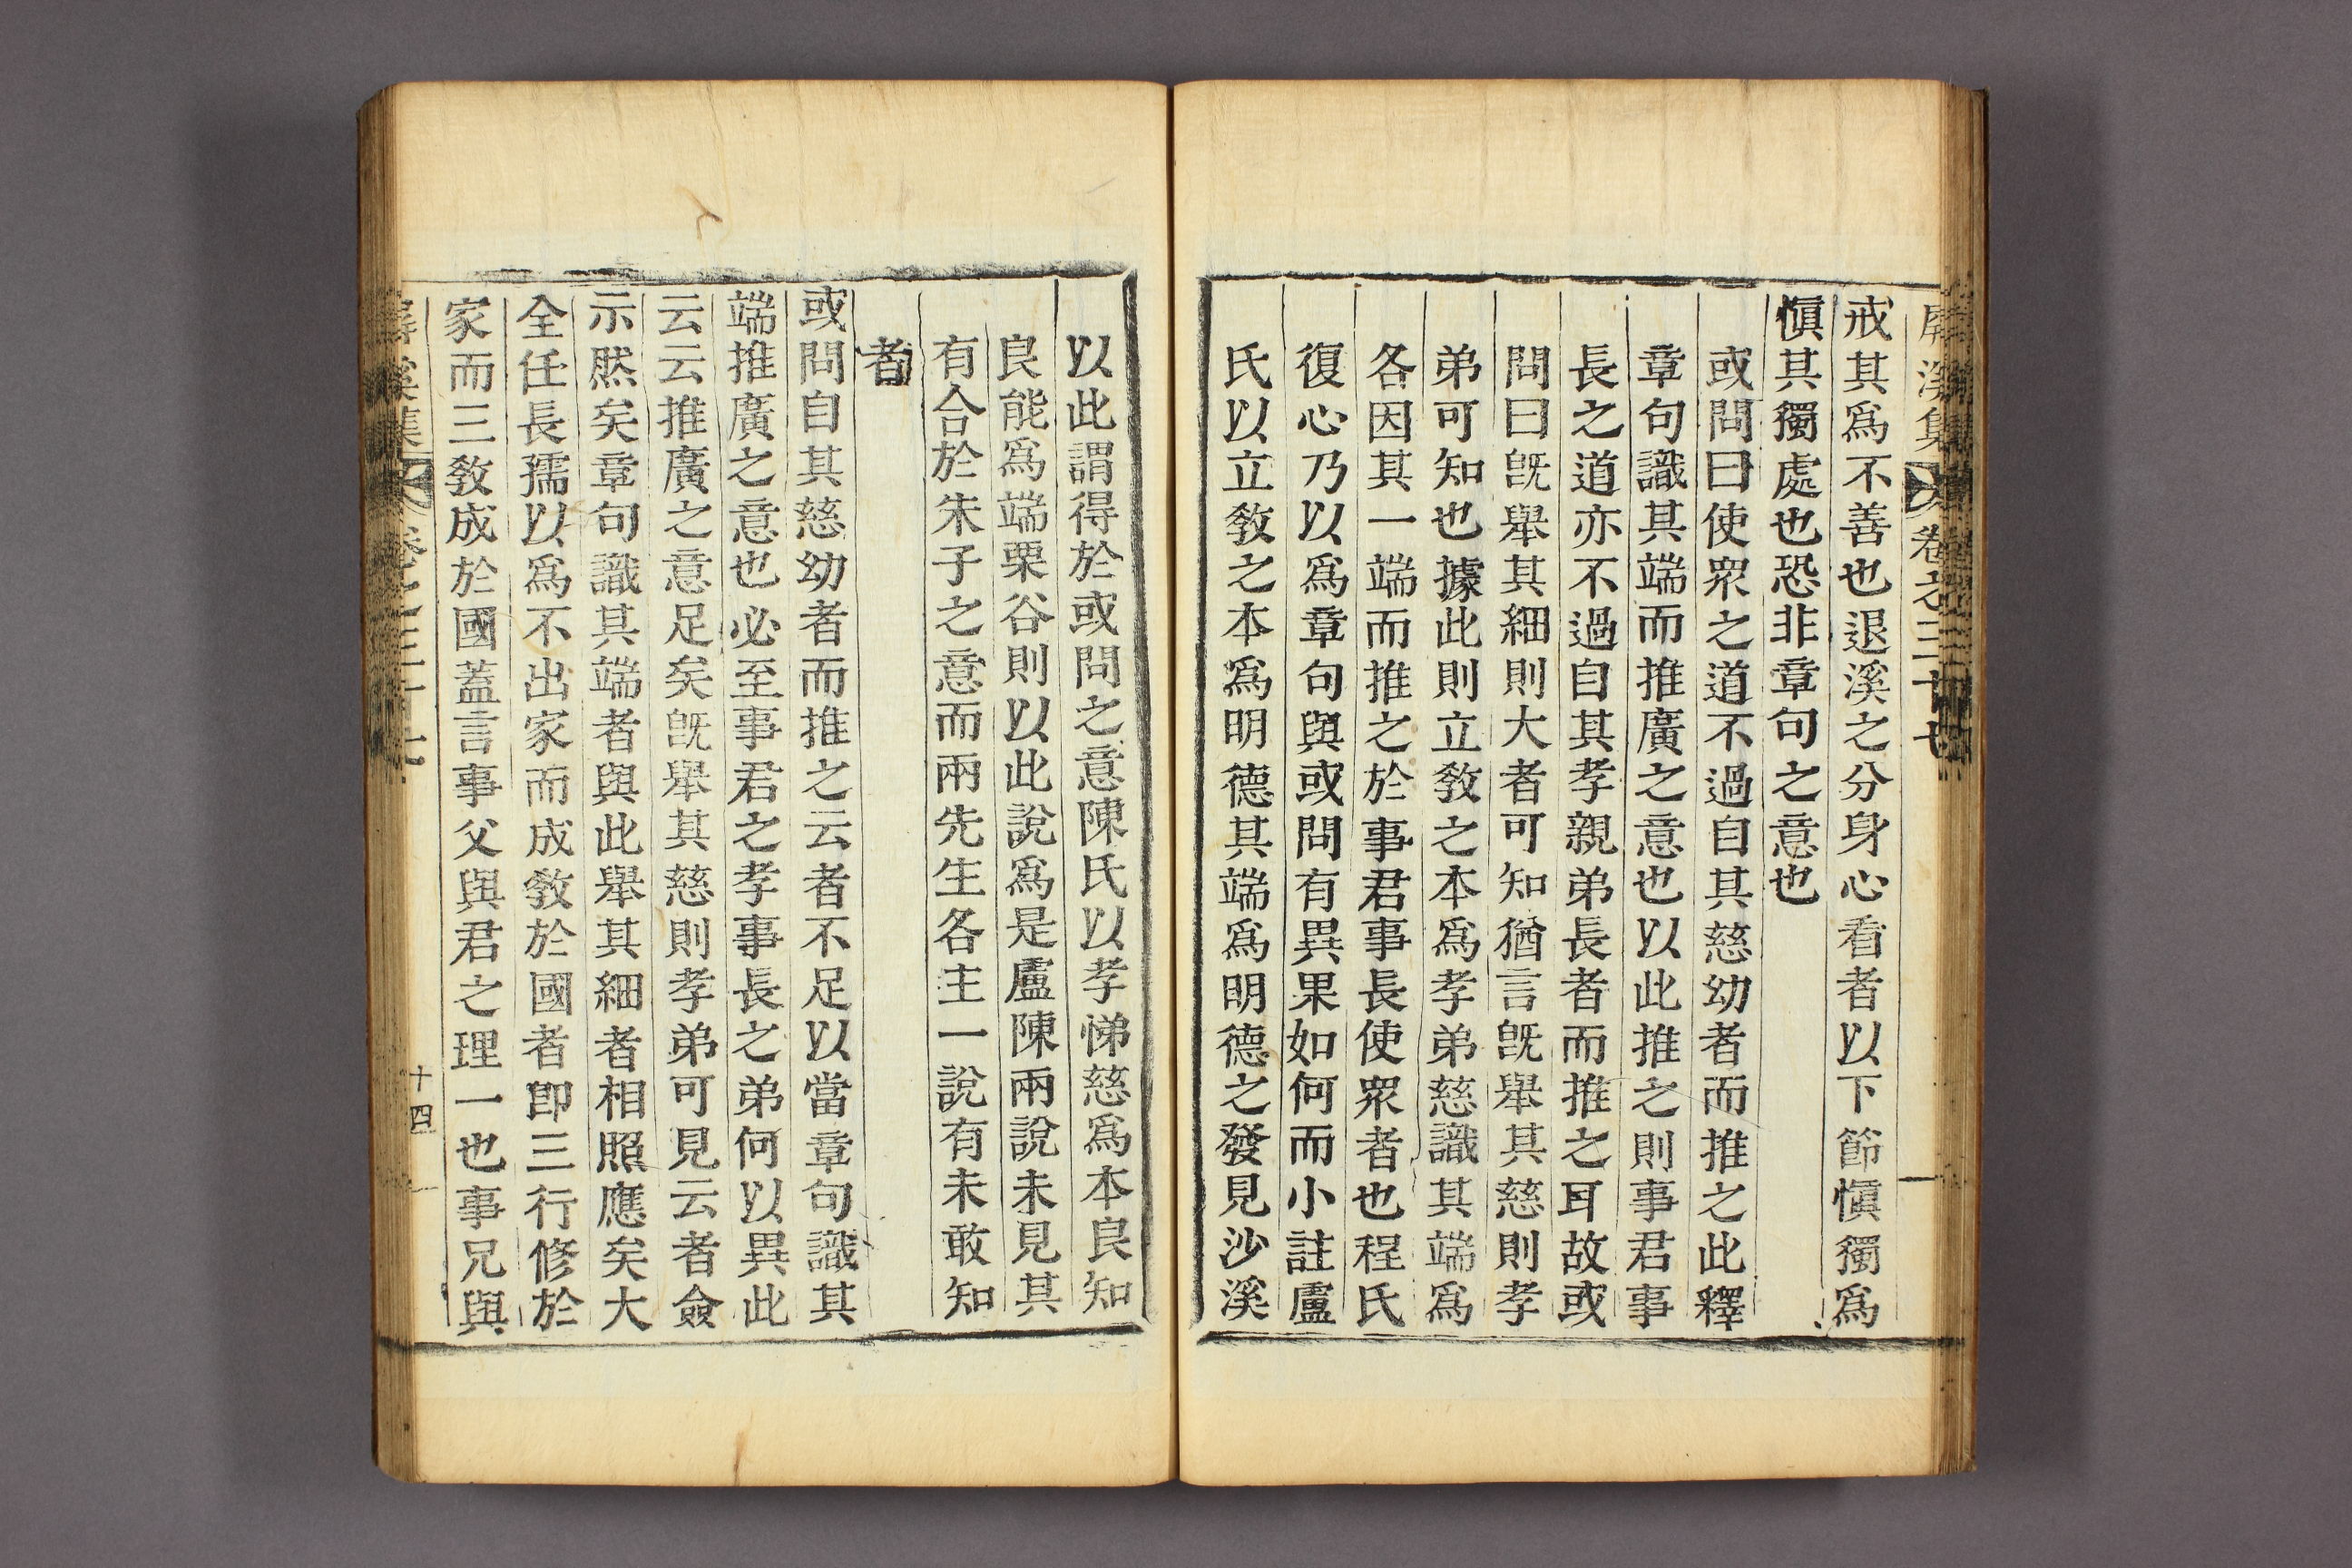 屛溪集 卷之三十七
戒其爲不善也退溪之分身心看者以下節愼獨爲
愼其獨處也恐非章句之意也
或問曰使衆之道不過自其慈幼者而推之此釋
章句識其端而推廣之意也以此推之則事君事
長之道亦不過自其孝親弟長者而推之耳故或
問曰旣舉其細則大者可知猶言旣舉其慈則孝
弟可知也據此則立敎之本爲孝弟慈識其端爲
各因其一端而推之於事君事長使衆者也程氏
復心乃以爲章句與或問有異果如何而小註盧
氏以立敎之本爲明德其端爲明德之發見沙溪
以此謂得於或問之意陳氏以孝悌慈爲本良知
良能爲端栗谷則以此說爲是盧陳兩說未見其
有合於朱子之意而兩先生各主一說有未敢知
者
或問自其慈幼者而推之云者不足以當章句識其
端推廣之意也必至事君之孝事長之弟何以異此
云云推廣之意足矣旣舉其慈則孝弟可見云者僉
示然矣章句識其端者與此舉其細者相照應矣大
全任長孺以爲不出家而成敎於國者卽三行修於
家而三敎成於國蓋言事父與君之理一也事兄與
屛溪集 卷之三十七 十四